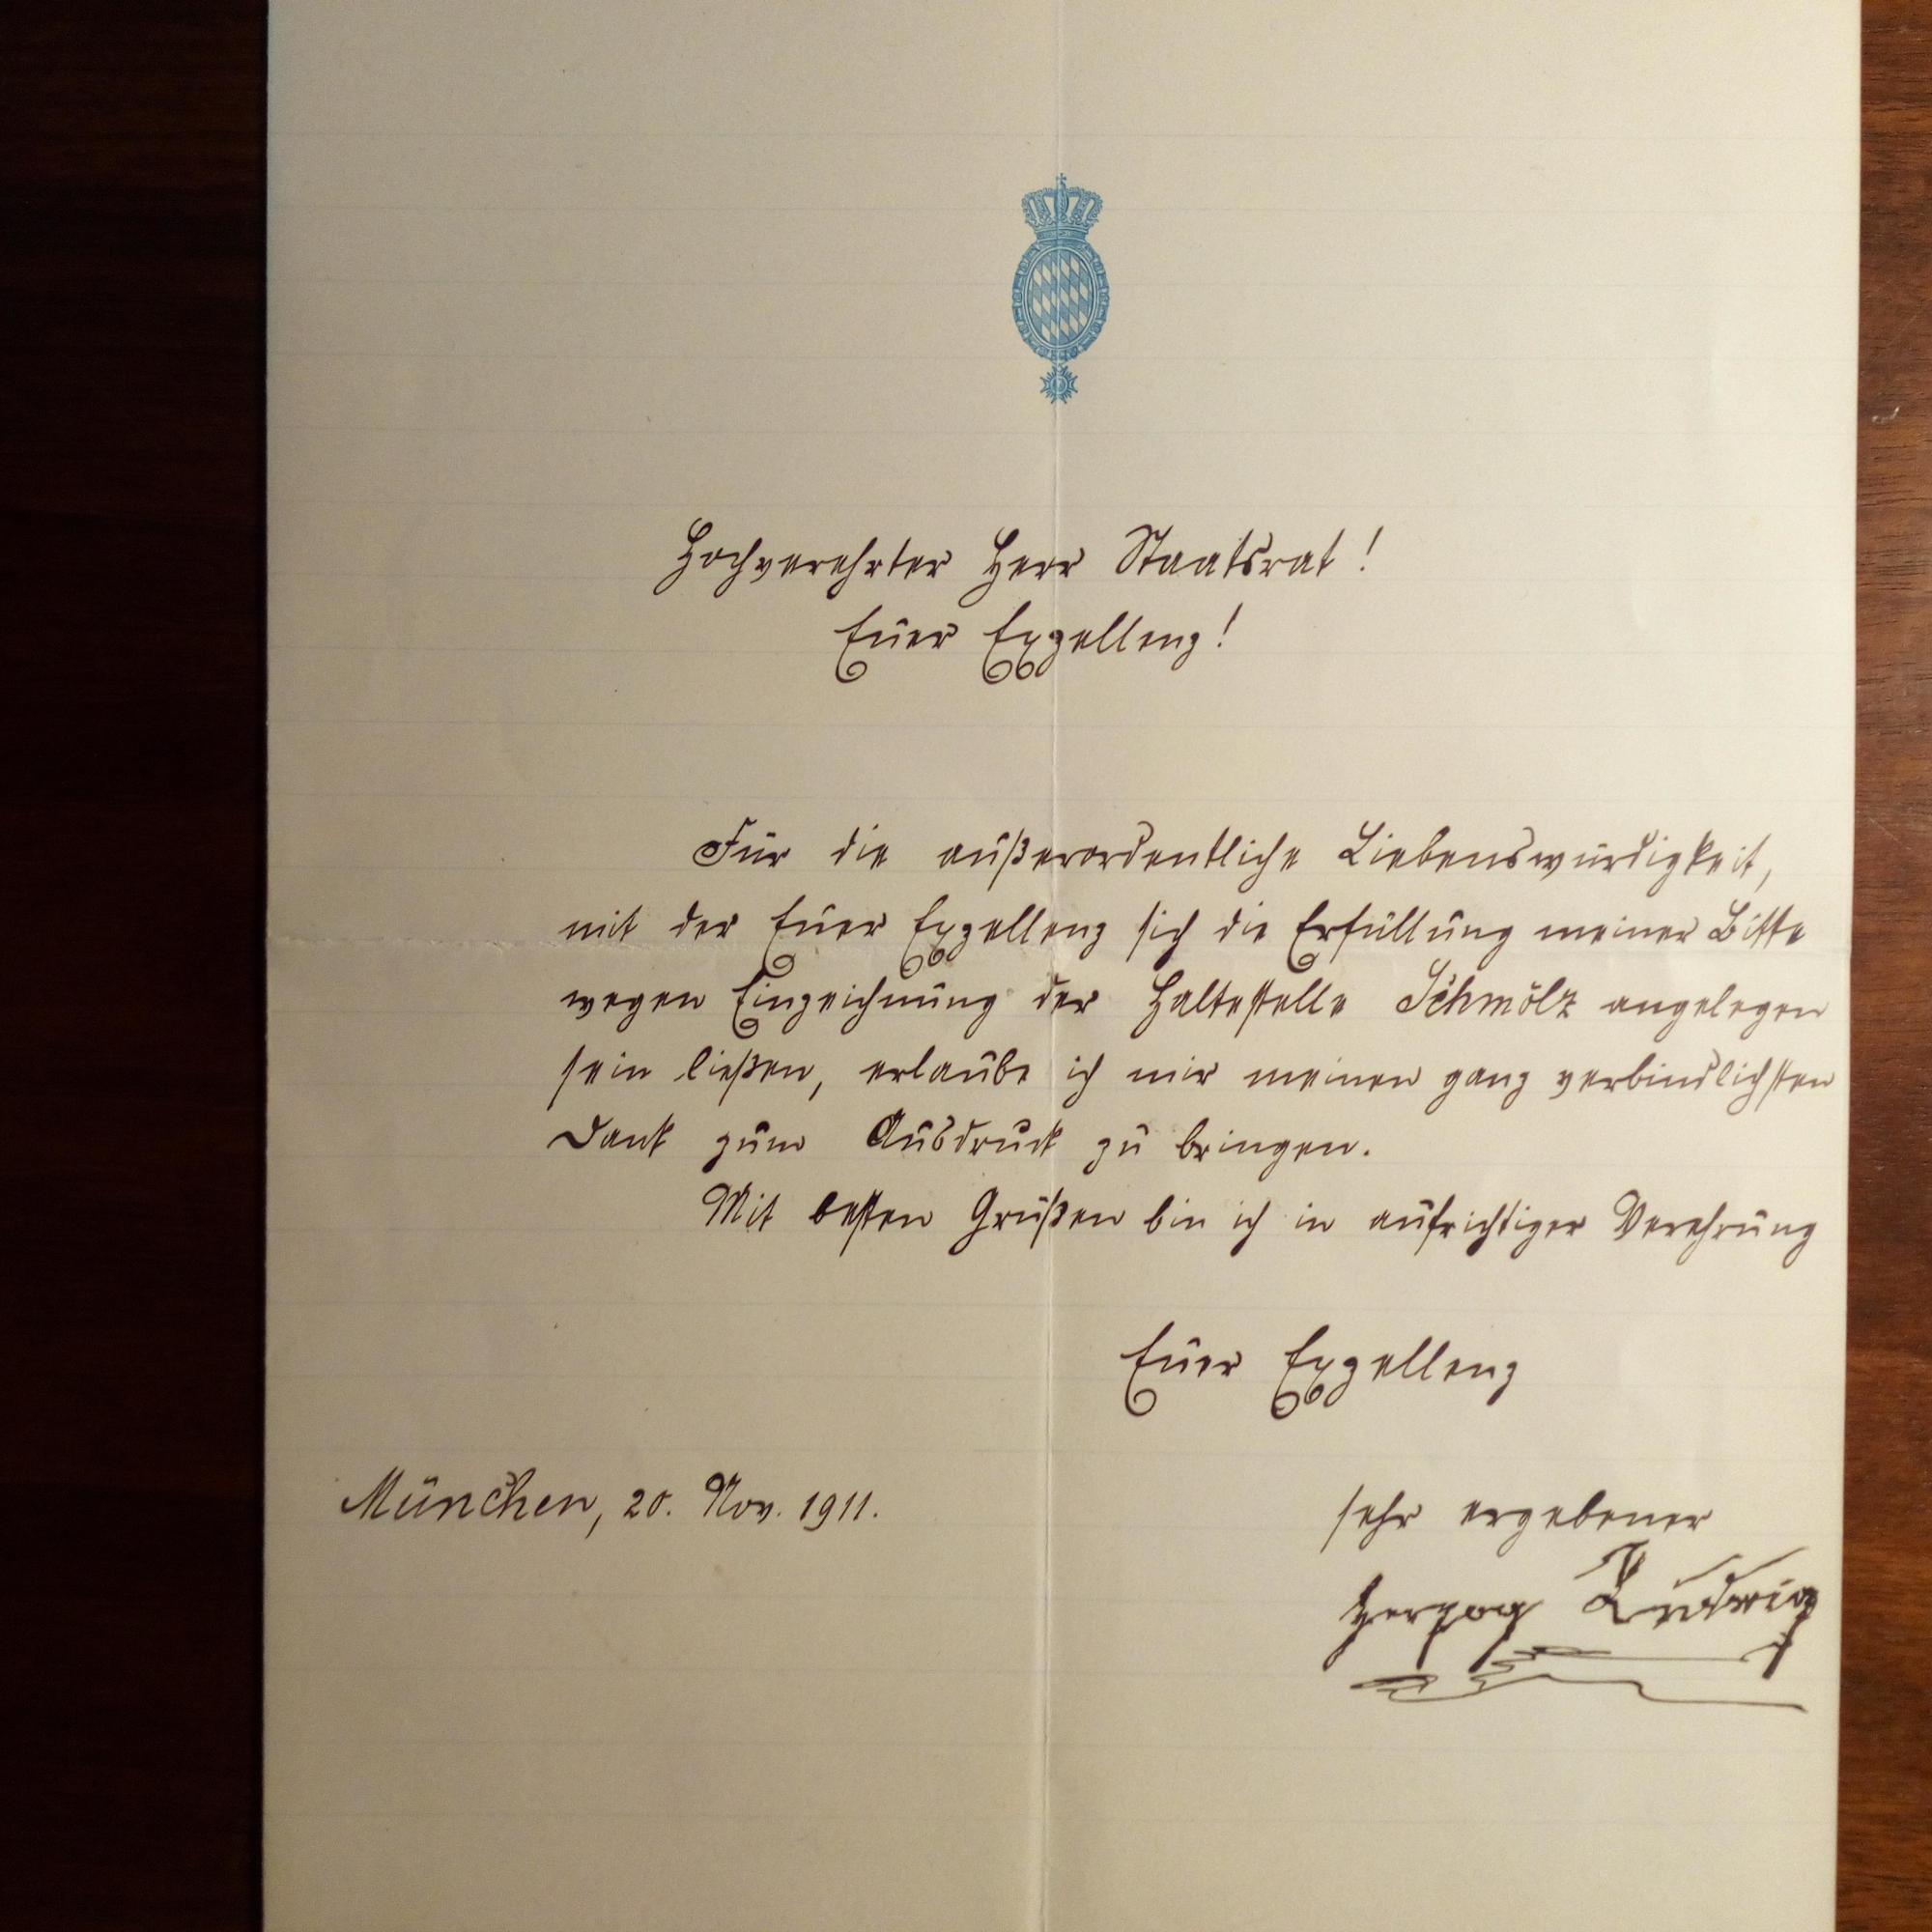 Hochverehrter Herr Staatsrat!
Euer Exzellenz!
Für die außerordentliche Liebenswürdigkeit,
mit der Euer Exzellenz sich die Erfüllung meiner Bitte
wegen Einzeichnung der Haltestelle Schmölz angelegen
sein ließen, erlaube ich mir meinen ganz verbindlichsten
Dank zum Ausdruck zu bringen.
Mit besten Grüßen bin ich in aufrichtiger Verehrung
Euer Exzellenz
München, 20. Nov. 1911.
sehr ergebener
Herzog Ludwig